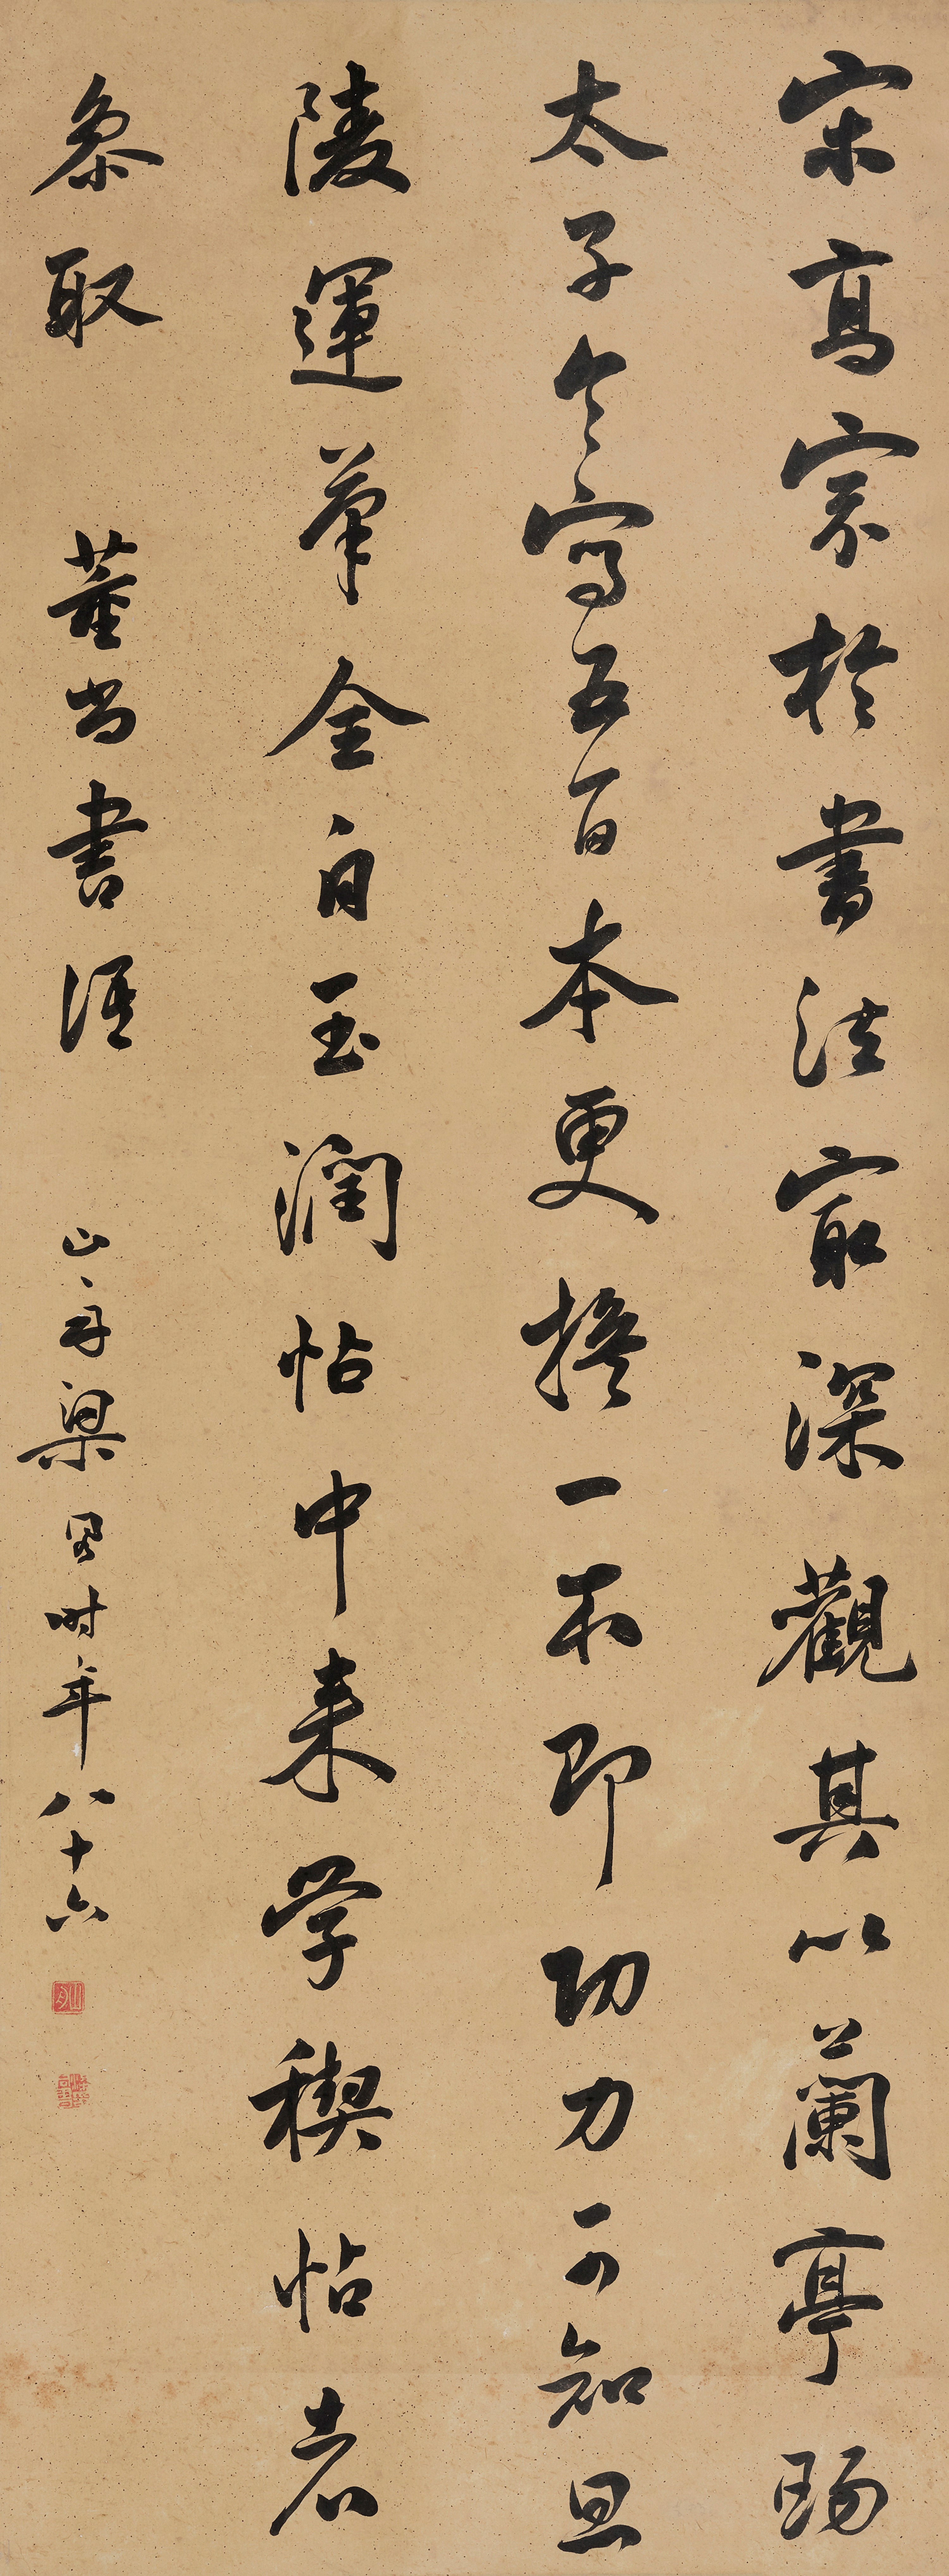 宋高宗於書法㝡深觀其以蘭亭賜
太子令寫五百本更換一本即功力可知思
陵運筆全自玉潤帖中来学禊帖者
叅取 董尚書語 山舟梁同書時年八十六